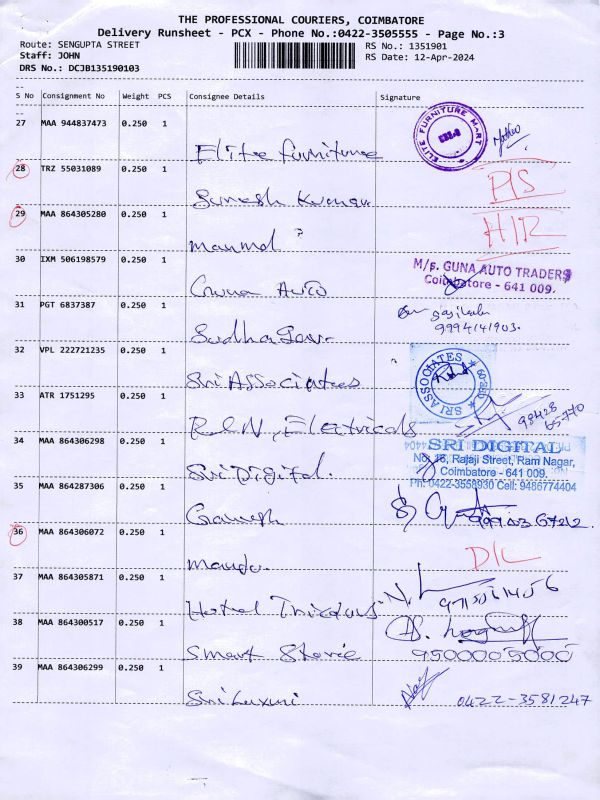 THE PROFESSIONAL COURIERS, COIMBATORE
Delivery Runsheet - PCX - Phone No.:0422-3505555 - Page No.:3
Route: SENGUPTA STREET
RS No.: 1351901
Staff: JOHN
RS Date: 12-Apr-2024
DRS No.: DCJB135190103
S No Consignment No Weight PCS Consignee Details Signature
27 MAA 944837473 0.250 1
Elite furniture
ELITE FURNITURE MART
28 TRZ 55031089 0.250 1
Suresh Kumar
P/S
29 MAA 864305280 0.250 1
?
H/R
30 IXM 506198579 0.250 1
Guna Auto
M/s. GUNA AUTO TRADERS
Coimbatore - 641 009.
31 PGT 6837387 0.250 1
9994141903.
32 VPL 222721235 0.250 1
Sri Associates
SRI ASSOCIATES
33 ATR 1751295 0.250 1
Electricals
98428
34 MAA 864306298 0.250 1
Sri Digital.
SRI DIGITAL
No: 16, Rajaji Street, Ram Nagar,
Coimbatore - 641 009.
Ph: 0422-3558930 Cell: 9486774404
35 MAA 864287306 0.250 1
Ganesh
36 MAA 864306072 0.250 1
D/L
37 MAA 864305871 0.250 1
Hotel
38 MAA 864300517 0.250 1
Smart
9500005000
39 MAA 864306299 0.250 1
Sri Luxmi
0422-3581247